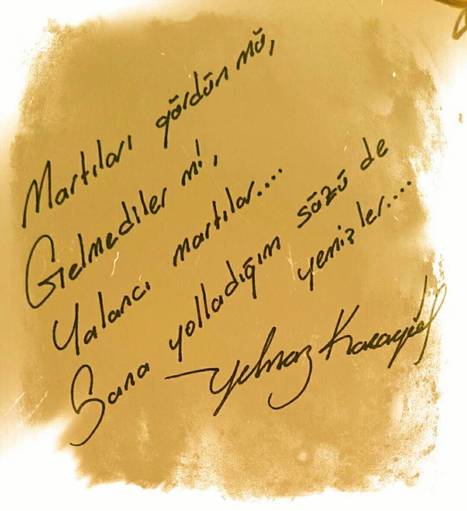 Martıları gördün mü,
Gelmediler mi,
Yalancı martılar....
Sana yolladığım sözü de
yemişler....
Yılmaz